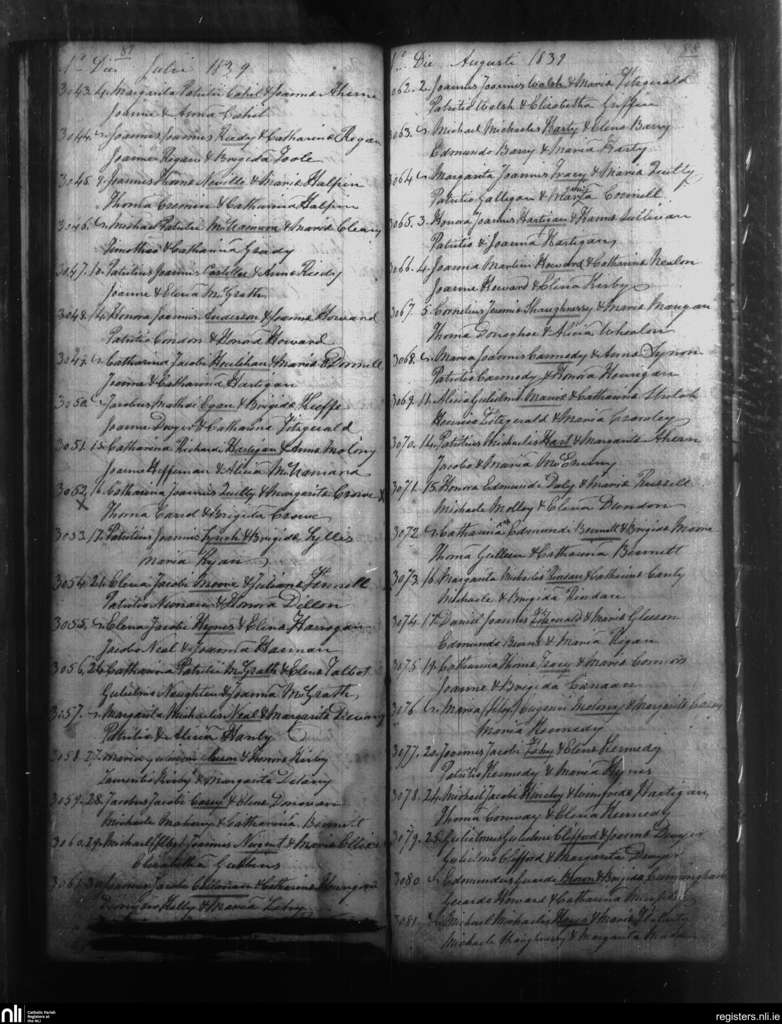 87
1ª Die Julii 1839
3043. 4. Margarita Patritii Cahil & Joanna Aherne
Joanne & Anna Cahil
3044. Joannes Joannis Reedy & Catharina Regan
Joanne Regan & Brigida Toole
3045. 9. Joannes Thoma Neville & Maria Halpin
Thoma Cremin & Catharina Halpin
3046. Michael Patritii McNamara & Maria Cleary
Timotheo & Catharina Grady
3047. 10. Patritius Joannis Costelloe & Anna Reedy
Joanne & Elena McGrath
3048. 14. Honora Joannis Anderson & Joanna Howard
Patritio Condon & Honora Howard
3049. Catharina Jacobi Houlihan & Maria O'Donnell
Joanne & Catharina Hartigan
3050. Jacobus Mathei Egan & Brigida Keoffe
Joanne Dwyer & Catharina Fitzgerald
3051. 15. Catharina Richardi Hartigan & Anna Molony
Joanne Heffernan & Alicia McNamara
3052. 16. Catharina Joannis Quilly & Margarita Crowe X
X Thoma & Brigida Crowe
3053. 17. Patritius Joannis Lynch & Brigida Lyllis
Maria Ryan
3054. 24. Elena Jacobi Moore & Juliana Fennell
Patritio Noonan & Honora Dillon
3055. Elena Jacobi Hynes & Elena Harrogan
Jacobo Neal & Joanna Hannan
3056. 26. Catharina Patritii McGrath & Elena Talbot
Gulielmo Naughton & Joanna McGrath
3057. Margarita Michaelis Neal & Margarita
Patritio & Alicia Hanly
3058. 27. Maria Gulielmi & Honora Kirby
Laurentio Kirby & Margarita Delany
3059. 28. Jacobus Jacobi Casey & Elena Donovan
Michaele Mahony & Catharina Bennett
3060. 29. Michael Joannis Nugent & Maria Ellis
Elizabetha Gubbins
3061. 30. Joannes Jacobi & Catharina
Kelly & Maria
88
1º Die Augusti 1839
3062. 2. Joannes Joannis Walsh & Maria Fitzgerald
Patritio Walsh & Elizabetha Griffin
3063. Michael Michaelis Harty & Elena Barry
Edmundo Barry & Maria Harty
3064. Margarita Joannis Tracy & Maria Quilly
Patritio Galligan & Maria Connell
3065. 3. Honora Joannis Hartigan & Sullivan
Patritio & Joanna Hartigan
3066. 4. Joanna Martini Howard & Catharina Nealon
Joanne Howard & Elena Kirby
3067. 5. Cornelius Jeremia Shaughnessy & Maria Mangan
Thoma Donoghoe & Alicia Whealon
3068. Maria Joannis Cannedy & Anna Synon
Patritio Cannedy & Honora Hourigan
3069. 11. Alicia Gulielmi & Catharina
Henrico Fitzgerald & Maria Crowley
3070. 14. Patritius Michaelis Hart & Margarita Ahern
Jacobo & Maria McEniry
3071. 15. Honora Edmundi Daly & Maria Russell
Michaele Molloy & Elena Dundon
3072. Catharina Edmundi Bennett & Brigida Moore
Thoma & Catharina Bennett
3073. 16. Margarita Michaelis Riordan & Catharina Canty
Michaele & Brigida Riordan
3074. 17. Daniel Joannis Fitzgerald & Maria Gleeson
Edmundo & Maria Regan
3075. 19. Catharina Thoma Tracy & Maria Connors
Joanne & Brigida Canaan
3076. Maria Eugenii Molony & Margarita Casey
Maria Kennedy
3077. 20. Joannes Jacobi & Elena Kennedy
Patritio Kennedy & Maria Hynes
3078. 24. Michael Jacobi & Winifrida Hartigan
Thoma Conway & Elena Kennedy
3079. 25. Gulielmus Gulielmi Clifford & Joanna Dwyer
Gulielmo Clifford & Margarita Dwyer
3080. Edmundus Gerardi & Brigida Cunningham
Gerardo Howard & Catharina
3081. Michael Michaelis Hayes & Maria Flaherty
Michaele Shaughnessy & Margarita
nli
Catholic Parish
Registers at
the NLI
registers.nli.ie